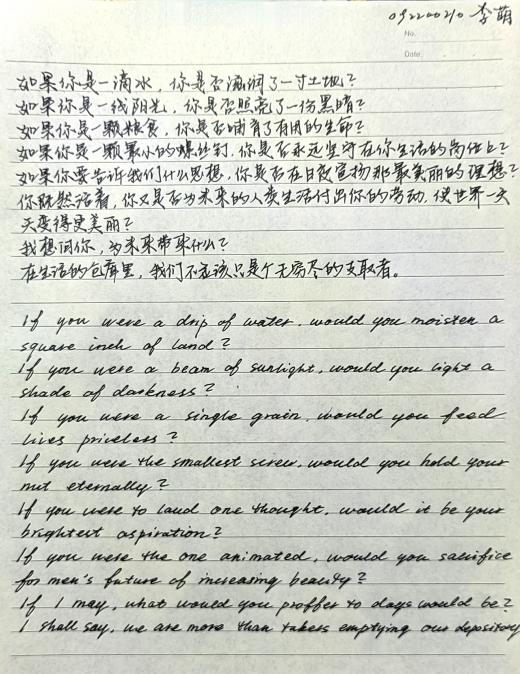 092200210 李萌
No.
Date.
如果你是一滴水，你是否滋润了一寸土地？
如果你是一线阳光，你是否照亮了一份黑暗？
如果你是一颗粮食，你是否哺育了有用的生命？
如果你是一颗最小的螺丝钉，你是否永远坚守在你生活的岗位上？
如果你要告诉我们什么思想，你是否在日夜宣扬那最美丽的理想？
你既然活着，你又是否为未来的人类生活付出你的劳动，使世界一天
天变得更美丽？
我想问你，为未来带来什么？
在生活的仓库里，我们不应该只是个无穷尽的支取者。
If you were a drip of water, would you moisten a
square inch of land?
If you were a beam of sunlight, would you light a
shade of darkness?
If you were a single grain, would you feed
lives priceless?
If you were the smallest screw, would you hold your
nut eternally?
If you were to laud one thought, would it be your
brightest aspiration?
If you were the one animated, would you sacrifice
for men's future of increasing beauty?
If I may, what would you proffer to days would be?
I shall say, we are more than takers emptying our depository